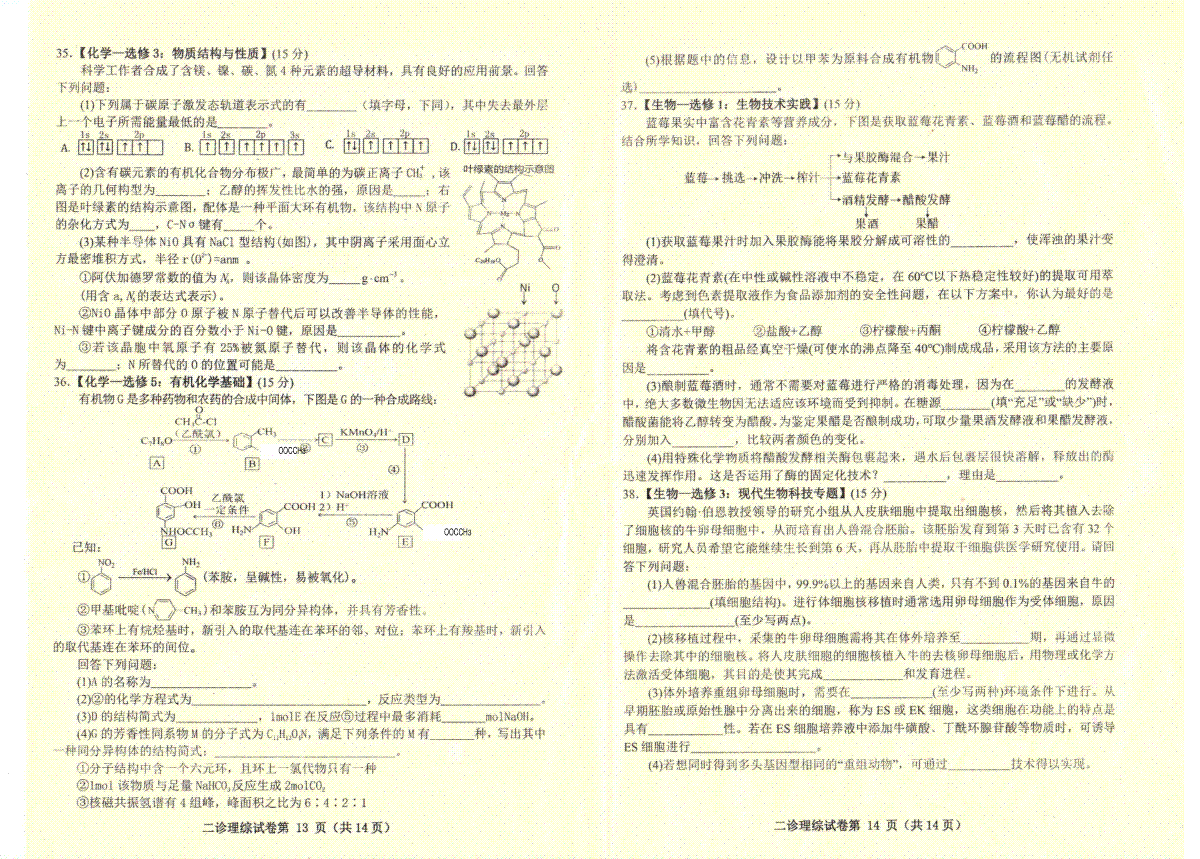 35.【化学—选修3：物质结构与性质】(15分)
科学工作者合成了含镁、镍、碳、氮4种元素的超导材料，具有良好的应用前景。回答
下列问题：
(1)下列属于碳原子激发态轨道表示式的有________（填字母，下同），其中失去最外层
上一个电子所需能量最低的是________。
1s 2s 2p 1s 2s 2p 3s 1s 2s 2p 1s 2s 2p
A. B. C. D.
(2)含有碳元素的有机化合物分布极广，最简单的为碳正离子CH₃⁺，该
离子的几何构型为________；乙醇的挥发性比水的强，原因是_____；右
图是叶绿素的结构示意图，配体是一种平面大环有机物，该结构中N原子
的杂化方式为____，C-Nσ键有_____个。
叶绿素的结构示意图
Mg
(3)某种半导体NiO具有NaCl型结构(如图)，其中阴离子采用面心立
方最密堆积方式，半径r(O²⁻)=anm 。
①阿伏加德罗常数的值为Nₐ，则该晶体密度为_____g·cm⁻³。
(用含a,Nₐ的表达式表示)。
②NiO晶体中部分O原子被N原子替代后可以改善半导体的性能，
Ni-N键中离子键成分的百分数小于Ni-O键，原因是__________。
③若该晶胞中氧原子有25%被氮原子替代，则该晶体的化学式
为________；N所替代的O的位置可能是__________。
Ni O
36.【化学—选修5：有机化学基础】(15分)
有机物G是多种药物和农药的合成中间体，下图是G的一种合成路线：
O
CH₃C-Cl
(乙酰氯)
C₇H₈O
①
CH₃
OOCCH₃
②
C
KMnO₄/H⁺
③
D
A
B
④
COOH
OH
NHOCCH₃
G
乙酰氯
一定条件
⑥
COOH
OH
H₂N
F
1）NaOH溶液
2）H⁺
⑤
COOH
H₂N
OOCCH₃
E
已知：
① NO₂ Fe/HCl NH₂ (苯胺，呈碱性，易被氧化)。
②甲基吡啶(N CH₃)和苯胺互为同分异构体，并具有芳香性。
③苯环上有烷烃基时，新引入的取代基连在苯环的邻、对位；苯环上有羧基时，新引入
的取代基连在苯环的间位。
回答下列问题：
(1)A的名称为________________。
(2)②的化学方程式为____________________________，反应类型为____________。
(3)D的结构简式为_____________，1molE在反应⑤过程中最多消耗_______molNaOH。
(4)G的芳香性同系物M的分子式为C₁₁H₁₃O₄N，满足下列条件的M有_______种，写出其中
一种同分异构体的结构简式：____________________________。
①分子结构中含一个六元环，且环上一氯代物只有一种
②1mol该物质与足量NaHCO₃反应生成2molCO₂
③核磁共振氢谱有4组峰，峰面积之比为6∶4∶2∶1
二诊理综试卷第 13 页（共14页）
(5)根据题中的信息，设计以甲苯为原料合成有机物 COOH NH₂ 的流程图(无机试剂任
选)______________________。
37.【生物—选修1：生物技术实践】(15分)
蓝莓果实中富含花青素等营养成分，下图是获取蓝莓花青素、蓝莓酒和蓝莓醋的流程。
结合所学知识，回答下列问题：
与果胶酶混合→果汁
蓝莓→挑选→冲洗→榨汁→蓝莓花青素
酒精发酵→醋酸发酵
果酒 果醋
(1)获取蓝莓果汁时加入果胶酶能将果胶分解成可溶性的__________，使浑浊的果汁变
得澄清。
(2)蓝莓花青素(在中性或碱性溶液中不稳定，在60℃以下热稳定性较好)的提取可用萃
取法。考虑到色素提取液作为食品添加剂的安全性问题，在以下方案中，你认为最好的是
__________(填代号)。
①清水+甲醇 ②盐酸+乙醇 ③柠檬酸+丙酮 ④柠檬酸+乙醇
将含花青素的粗品经真空干燥(可使水的沸点降至40℃)制成成品，采用该方法的主要原
因是__________。
(3)酿制蓝莓酒时，通常不需要对蓝莓进行严格的消毒处理，因为在________的发酵液
中，绝大多数微生物因无法适应该环境而受到抑制。在糖源________(填“充足”或“缺少”)时，
醋酸菌能将乙醇转变为醋酸。为鉴定果醋是否酿制成功，可取少量果酒发酵液和果醋发酵液，
分别加入__________，比较两者颜色的变化。
(4)用特殊化学物质将醋酸发酵相关酶包裹起来，遇水后包裹层很快溶解，释放出的酶
迅速发挥作用。这是否运用了酶的固定化技术？__________，理由是__________。
38.【生物—选修3：现代生物科技专题】(15分)
英国约翰·伯恩教授领导的研究小组从人皮肤细胞中提取出细胞核，然后将其植入去除
了细胞核的牛卵母细胞中，从而培育出人兽混合胚胎。该胚胎发育到第3天时已含有32个
细胞，研究人员希望它能继续生长到第6天，再从胚胎中提取干细胞供医学研究使用。请回
答下列问题：
(1)人兽混合胚胎的基因中，99.9%以上的基因来自人类，只有不到0.1%的基因来自牛的
______________(填细胞结构)。进行体细胞核移植时通常选用卵母细胞作为受体细胞，原因
是________________(至少写两点)。
(2)核移植过程中，采集的牛卵母细胞需将其在体外培养至___________期，再通过显微
操作去除其中的细胞核。将人皮肤细胞的细胞核植入牛的去核卵母细胞后，用物理或化学方
法激活受体细胞，其目的是使其完成_____________和发育进程。
(3)体外培养重组卵母细胞时，需要在_____________(至少写两种)环境条件下进行。从
早期胚胎或原始性腺中分离出来的细胞，称为ES或EK细胞，这类细胞在功能上的特点是
具有____________性。若在ES细胞培养液中添加牛磺酸、丁酰环腺苷酸等物质时，可诱导
ES细胞进行____________________。
(4)若想同时得到多头基因型相同的“重组动物”，可通过__________技术得以实现。
二诊理综试卷第 14 页（共14页）